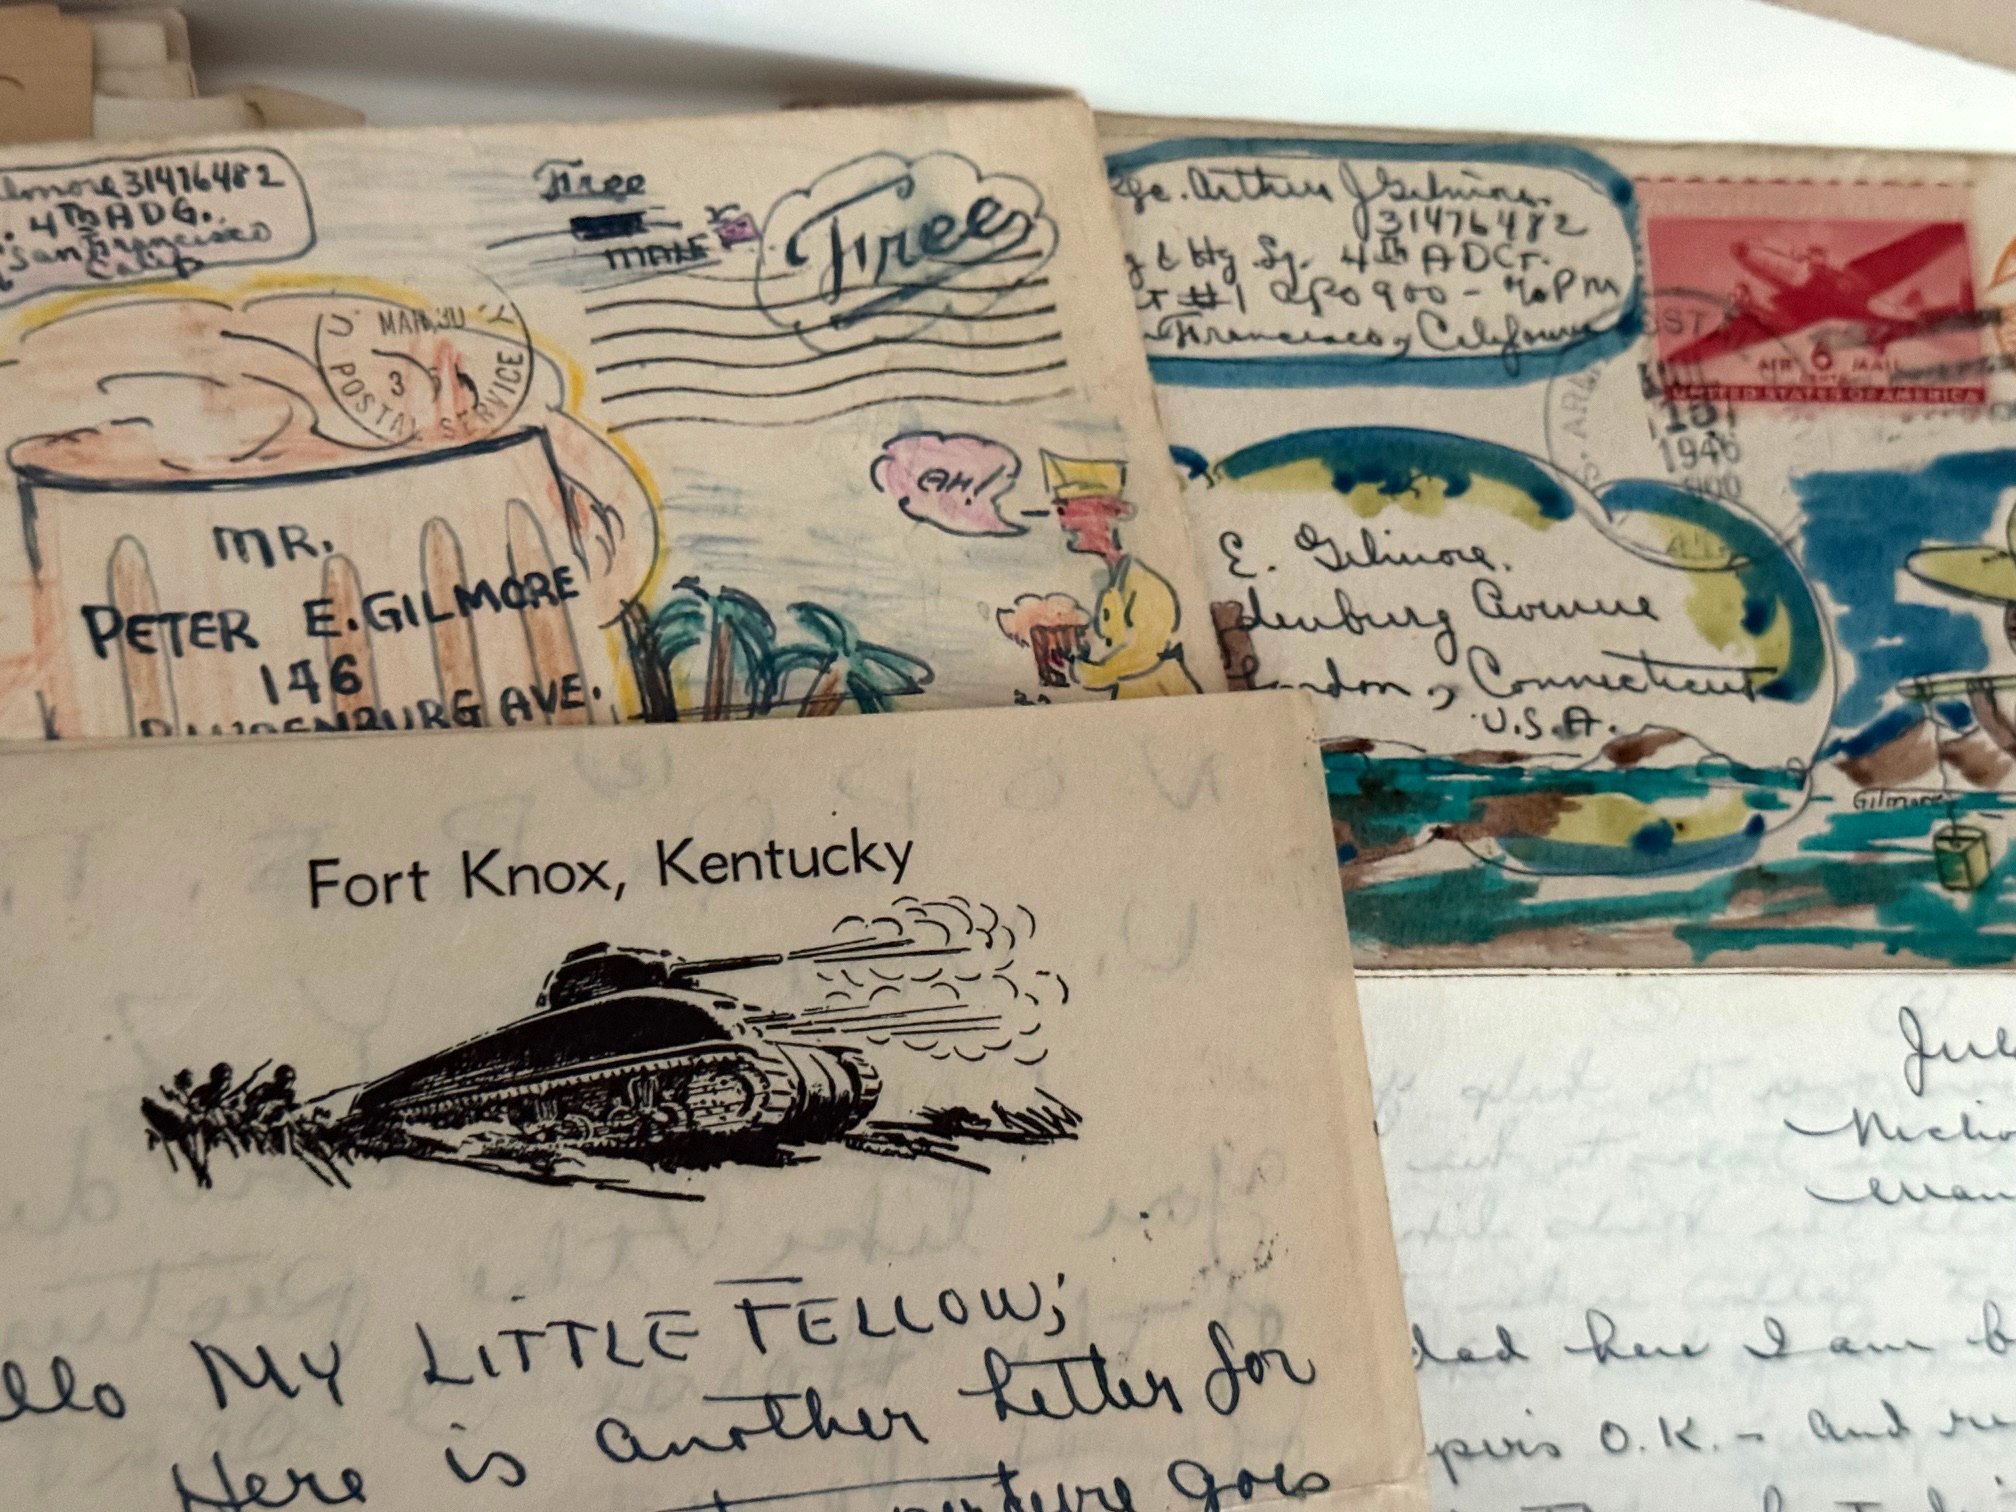 31476482
4TH ADG.
San Francisco
Calif
Free
MALE
Free
MAR 30
3
U
POSTAL SERVICE
AH!
MR.
PETER E. GILMORE
146
AVE.
Arthur J Gilmore.
31476482
& Hq Sq. 4th ADCr.
#1 APO 900 -
Francisco, California
AIR 6 MAIL
UNITED STATES OF AMERICA
S. AR
15
1946
900
E. Gilmore.
denburg Avenue
London, Connecticut
U.S.A.
Gilmore
Fort Knox, Kentucky
ello MY LITTLE FELLOW;
Here is another letter for
goes
dad here I am b
O.K. - and re